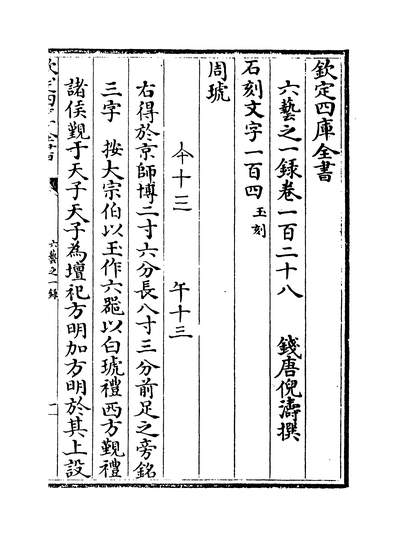 欽定四庫全書
六藝之一録卷一百二十八
錢唐倪濤撰
石刻文字一百四 玉刻
周琥
午十三
右得於京師博二寸六分長八寸三分前足之旁銘
三字 按大宗伯以玉作六器以白琥禮西方覲禮
諸侯覲于天子天子為壇祀方明加方明於其上設
六藝之一録